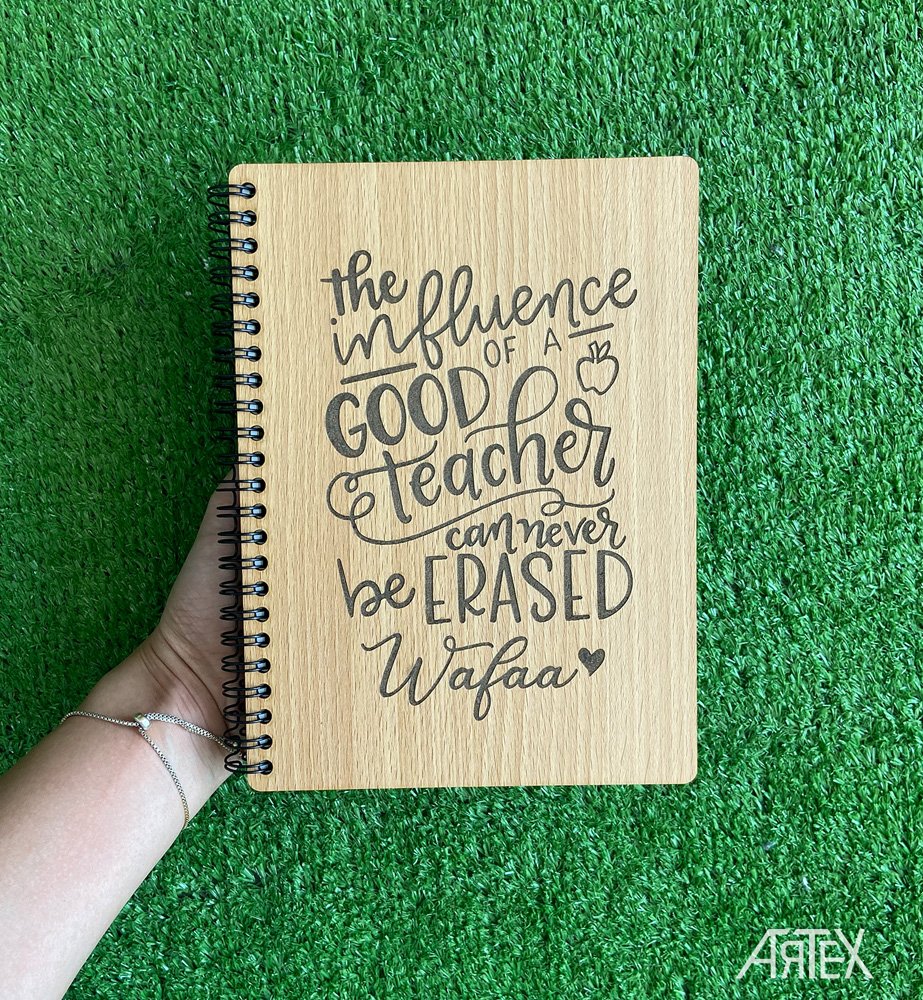 the
influence
OF A
GOOD
teacher
can never
be ERASED
Wafaa
ARTEX